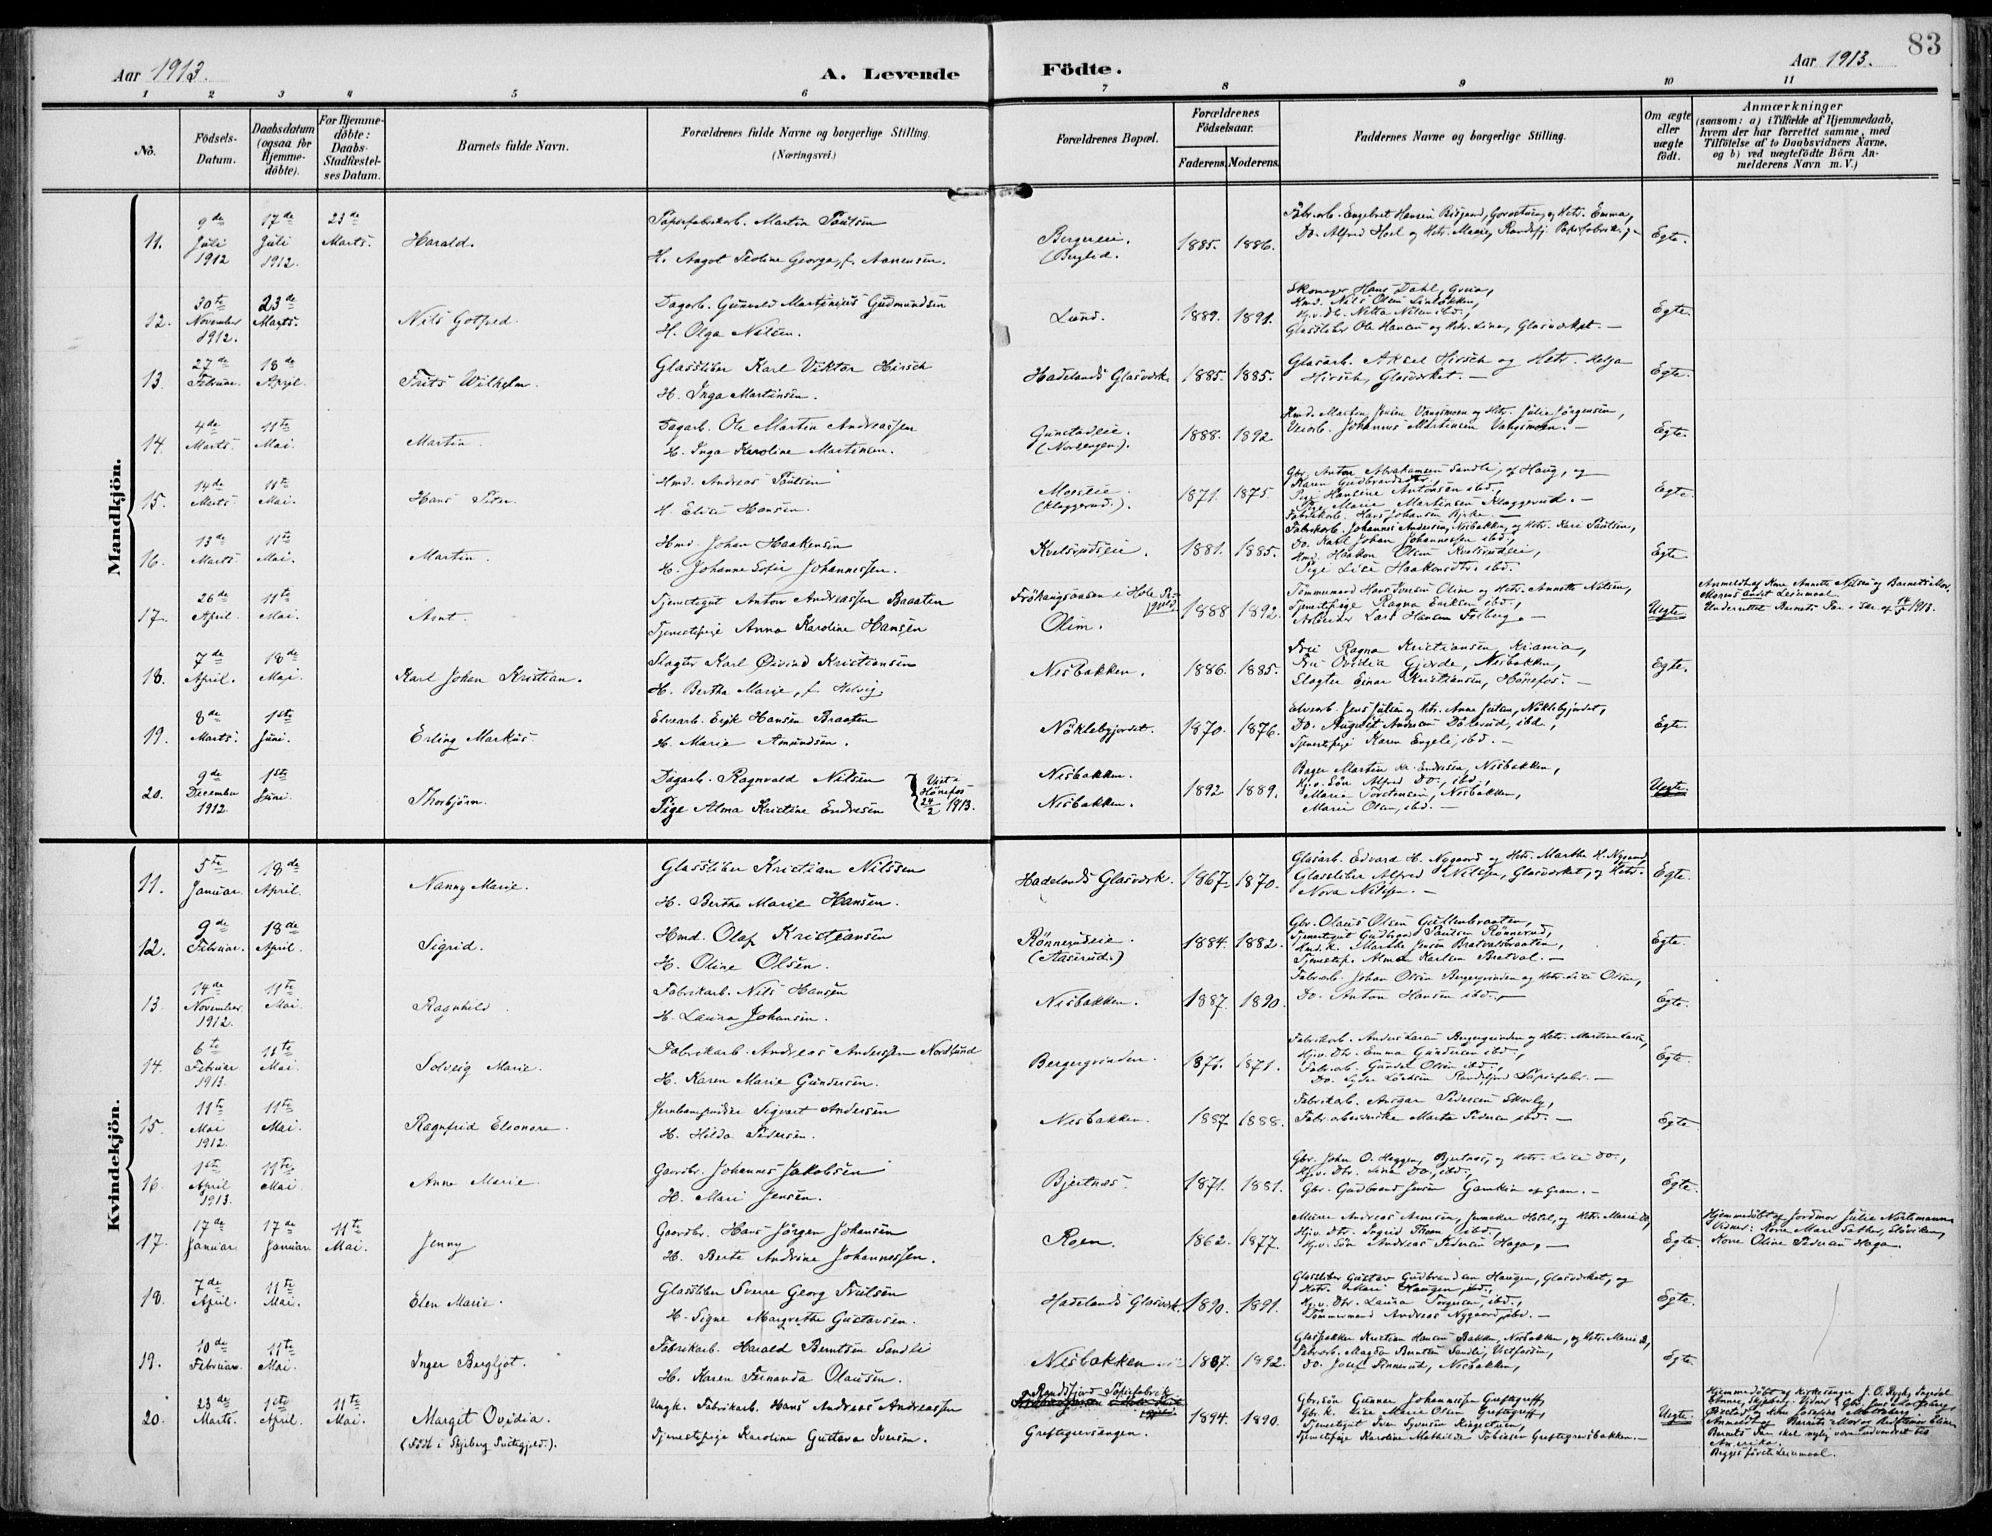 83
Aar 1913. A. Levende Födte. Aar 1913.
1 2 3 4 5 6 7 8 9 10 11
No.
Födsels-Datum.
Daabsdatum (ogsaa for Hjemme-döbte).
For Hjemme-döbte: Daabs-Stadfæstel-ses Datum.
Barnets fulde Navn.
Forældrenes fulde Navne og borgerlige Stilling.
(Næringsvei.)
Forældrenes Bopæl.
Forældrenes Födselsaar.
Faderens. Moderens.
Faddernes Navne og borgerlige Stilling.
Om ægte eller uægte födt.
Anmærkninger
(saasom: a) i Tilfælde af Hjemmedaab,
hvem der har forrettet samme, med
Tilföielse af to Daabsvidners Navne,
og b) ved uægtefödte Börn An-
melderens Navn m. V.)
Mandkjön.
11. 9de Juli 1912 17de Juli 1912. 23de Marts. Harald.
Papirfabrikarb. Martin Paulsen
H. Aagot Teoline Georga, f. Aanensen.
Bergereie. (Berglid. 1885. 1886. Egte.
12. 30te November 1912. 23de Marts. Nils Gotfred.
Dagarb. Gunvald Martinius Gudmundsen
H. Olga Nilsen.
Lund. 1889. 1891.
Skomager Hans Dahl, Gvia,
Hmd. Nils Olsen
Glassliber Ole Hansen og Htr. Lina, Glasværket. Egte.
13. 27de Februar. 18de April. Frits Wilhelm.
Glassliber Karl Viktor Hirsch
H. Inga Martinsen.
Hadelands Glasværk. 1885. 1885.
Glasarb. Aksel Hirsch og Htr. Helga
Hirsch, Glasværket. Egte.
14. 4de Marts. 11te Mai. Martin.
Dagarb. Ole Martin Andreassen
H. Inga Karoline Martinsen.
Gunstadeie. 1888. 1892
Hmd. Morten Jensen Vangsmoen og Htr. Julie Jörgensen,
Veiarb. Johannes Martinsen Vangsmoen. Egte.
15. 14de Marts. 11te Mai. Hans Peter.
Hmd. Andreas Paulsen
H. Elise Hansen.
Moeseie. (Klaggerud.) 1871. 1875
Gbr. Anton Abrahamsen Sandli, af Haug, og
Karen Gudbrandsdtr.,
Pige Hansine Antonsen ibd.,
Pige Marie Martinsen Klaggerud.
Fabrikarb. Hans Johansen Bjerke. Egte.
16. 13de Marts. 11te Mai. Martin.
Hmd. Johan Haakensen
H. Johanne Sofie Johannessen.
Kvelsrudseie. 1881. 1885.
Fabrikarb. Johannes Andersen, Nesbakken, og Htr. Kari Paulsen,
Do. Karl Johan Johannessen ibd.,
Hmd. Haakon Olsen Kvelsrudeie,
Pige Lise Haakonsdtr. ibd. Egte.
17. 26de April. 11te Mai. Arnt.
Tjenestegut Anton Andreassen Braaten
Tjenestepige Anna Karoline Hansen
Olim. 1888 1892.
Tømmermand Hans Jensen Olim og Htr. Annette Nilsen,
Tjenestepige Ragna Eriksen ibd.,
Arbeider Lars Hansen Uegte.
Anmeldt af Kone Annette Nilsen og Barnets Mor.
Morens andet Leiermaal.
Underrettet Barnets Far i Skr. af 14/5 1913.
18. 7de April. 18de Mai. Karl Johan Kristian.
Slagter Karl Øivind Kristiansen
H. Berthe Marie, f. Helvig.
Nesbakken. 1886. 1885.
Fru Ragna Kristiansen, Kristiania,
Fru Ovidia Gjerde, Nesbakken,
Slagter Einar Kristiansen, Hönefos. Egte.
19. 8de Marts. 1ste Juni. Erling Markus.
Elvearb. Erik Hansen Braaten
H. Marie Amundsen.
Nöklebyjordet. 1870. 1876.
Elvearb. Jens Julsen og Htr. Anne Julsen, Nöklebyjordet,
Do. August Andersen ibd.,
Tjenestepige Karen Engeli, ibd. Egte.
20. 9de December 1912. 1ste Juni. Thorbjörn.
Dagarb. Ragnvald Nilsen
Pige Alma Kristine Endresen
Viet i Hönefos 24/2 1913.
Nesbakken.
Nesbakken. 1892 1889.
Bager Martin Kr. Endresen, Nesbakken,
Hj.v. Søn Alfred Do., ibd.,
Marie Torstensen, Nesbakken,
Marie Olsen, ibd. Uegte.
Kvindekjön.
11. 5te Januar. 18de April. Nanny Marie.
Glassliber Kristian Nilssen
H. Berthe Marie Hansen.
Hadelands Glasværk. 1867 1870.
Glasarb. Edvard H. Nygaard og Htr. Marthe H. Nygaard,
Glassliber Alfred Nilssen, Glasværket, og Htr.
Nora Nilssen. Egte.
12. 9de Februar. 18de April. Sigrid.
Hmd. Olaf Kristiansen
H. Oline Olsen.
Rönnerudeie. (Aaserud.) 1884. 1882.
Gbr. Olaus Olsen Gullenbraaten,
Tjenestegut Gudbrand Paulsen Rönnerud,
Hmd.k. Marthe Jensen Bratvalsbraaten,
Tjenestep. Alma Karlsen Bratval. Egte.
13. 14de November 1912. 11te Mai. Ragnhild.
Fabrikarb. Nils Hansen
H. Laura Johansen.
Nesbakken. 1887. 1890.
Fabrarb. Johan Olsen Bergergrinden og Htr. Lise Olsen,
Do. Anton Hansen ibd. Egte.
14. 6te Februar 1913. 11te Mai. Solveig Marie.
Fabrikarb. Andreas Anderssen Nordlund
H. Karen Marie Gundersen.
Bergergrinden. 1871. 1871.
Fabrikarb. Anders Larsen Bergergrinden og Htr. Martine Larsen,
Hj.v. Dtr. Emma Gundersen ibd.,
Fabrarb. Gunder Olsen ibd.,
Randsfjord Papirfabr. Egte.
15. 11te Mai 1912. 11te Mai. Ragnfrid Eleonore.
Sigvart Andersen
H. Hilda Pedersen.
Nesbakken. 1887 1888.
Fabrikarb. Ansgar Pedersen Skorly,
Fabrarbeiderske Marta Pedersen ibd. Egte.
16. 1ste April 1913. 11te Mai. Anne Marie.
Gaardbr. Johannes Jakobsen
H. Mari Jensen.
Bjertnæs. 1871. 1881.
Gbr. John O. Heggen, Bjertnæs, og Htr. Lise Do.,
Hj.v. Dtr. Lina Do., ibd.,
Gbr. Gudbrand Jensen Gamkin af Gran. Egte.
17. 17de Januar. 17de Januar. 11te Mai. Jenny
Gaardbr. Hans Jörgen Johansen
H. Berte Andrine Johannessen.
Roen. 1862. 1877.
Murer Andreas Arnesen, Jevnaker Hotel, og Htr. Marie Do,
Hj.v. Dtr. Sigrid Thoen ibd.,
Hj.v. Søn Andreas Pedersen Haga. Egte.
Hjemmedöbt af Jordmor Julie Nortemanns
Vidner: Kone Mari Sæther,
Kone Oline Pedersen Haga.
18. 7de April. 11te Mai. Elen Marie.
Glassliber Sverre Georg Paulsen
H. Signe Margrethe Gustavsen.
Hadelands Glasværk. 1890. 1891.
Glassliber Gustav Gudbrandsen Haugen, Glasværket, og
Htr. Mari Haugen, ibd.,
Hj.v. Dtr. Laura Torgersen, ibd.,
Tømmermand Andreas Nygaard, ibd. Egte.
19. 10de Februar. 11te Mai. Inger Bergljot.
Fabrikarb. Harald Berntsen Sandli
H. Karen Fernanda Olausen.
Nesbakken 1887. 1892.
Glaspakker Kristian Hansen Bakken, Nesbakken, og Htr. Marie Do,
Fabrarb. Magda Berntsen Sandli,
Do. Josef Finnerud, Nesbakken, Egte.
20. 23de Marts. 1ste April. 11te Mai. Margit Ovidia.
(Født i Skjeberg Prestegjeld.)
Ungk. Fabrikarb. Hans Andreas Andreassen
Tjenestepige Karoline Gustava Iversen.
Randsfjord Papirfabrik
Greftegrevsengen. 1894. 1890.
Gbr.søn Gunnar Johannessen Greftegreff,
Gbr.k. Lise Marie Olsen Greftegreff,
Tjenestegut Iver Syversen Ringestuen,
Tjenestepige Karoline Mathilde Tobiasen Greftegrevsbakken. Uegte.
Hjemmedöbt af Kirkesanger
Anmeldt af Barnets Mor
Barnets Far skal nylig være udvandret til
Amerika.
Begges første Leiermaal.